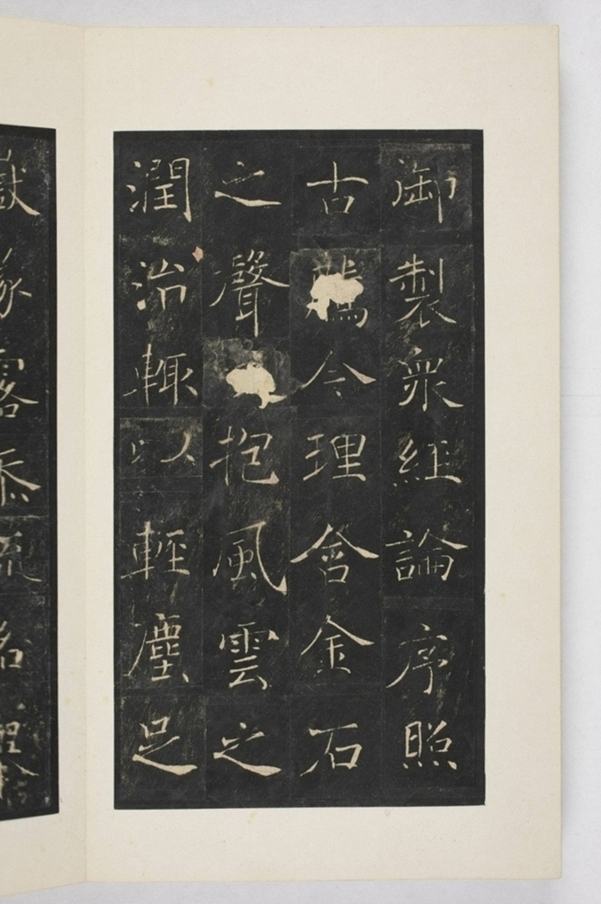 御製衆經論序照
古騰今理含金石
之聲抱風雲之
潤治輒以輕塵足